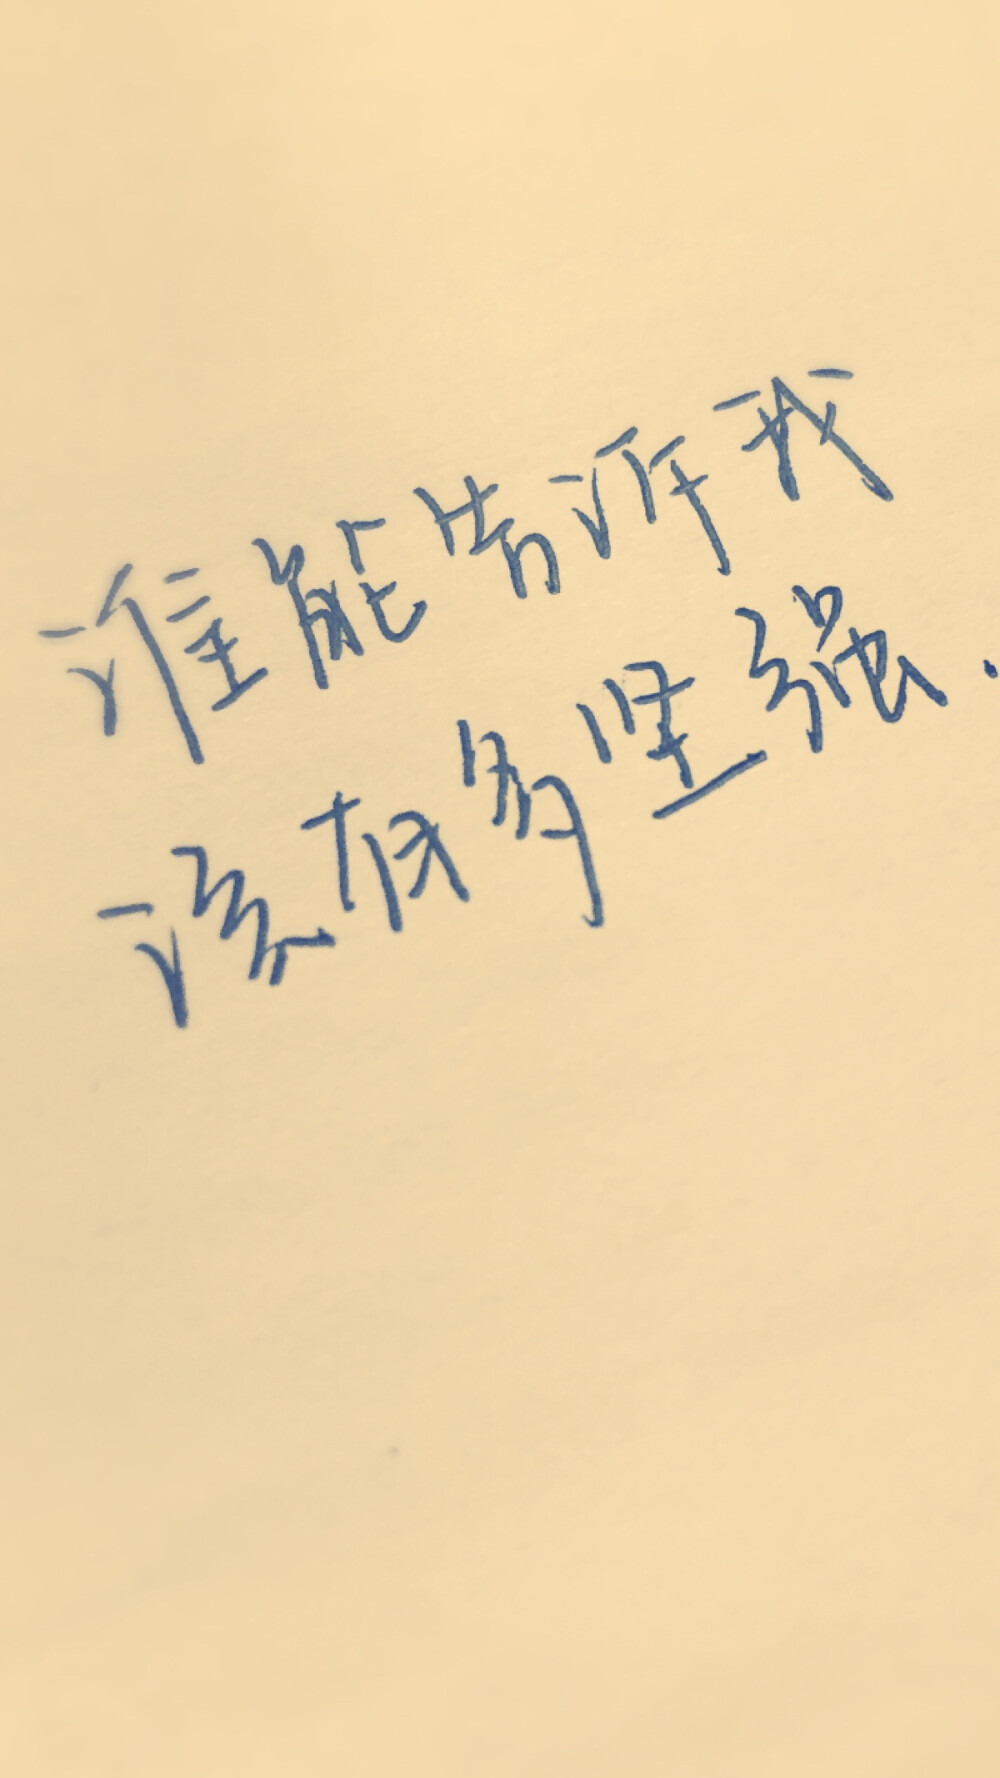 谁能告诉我
该有多坚强.